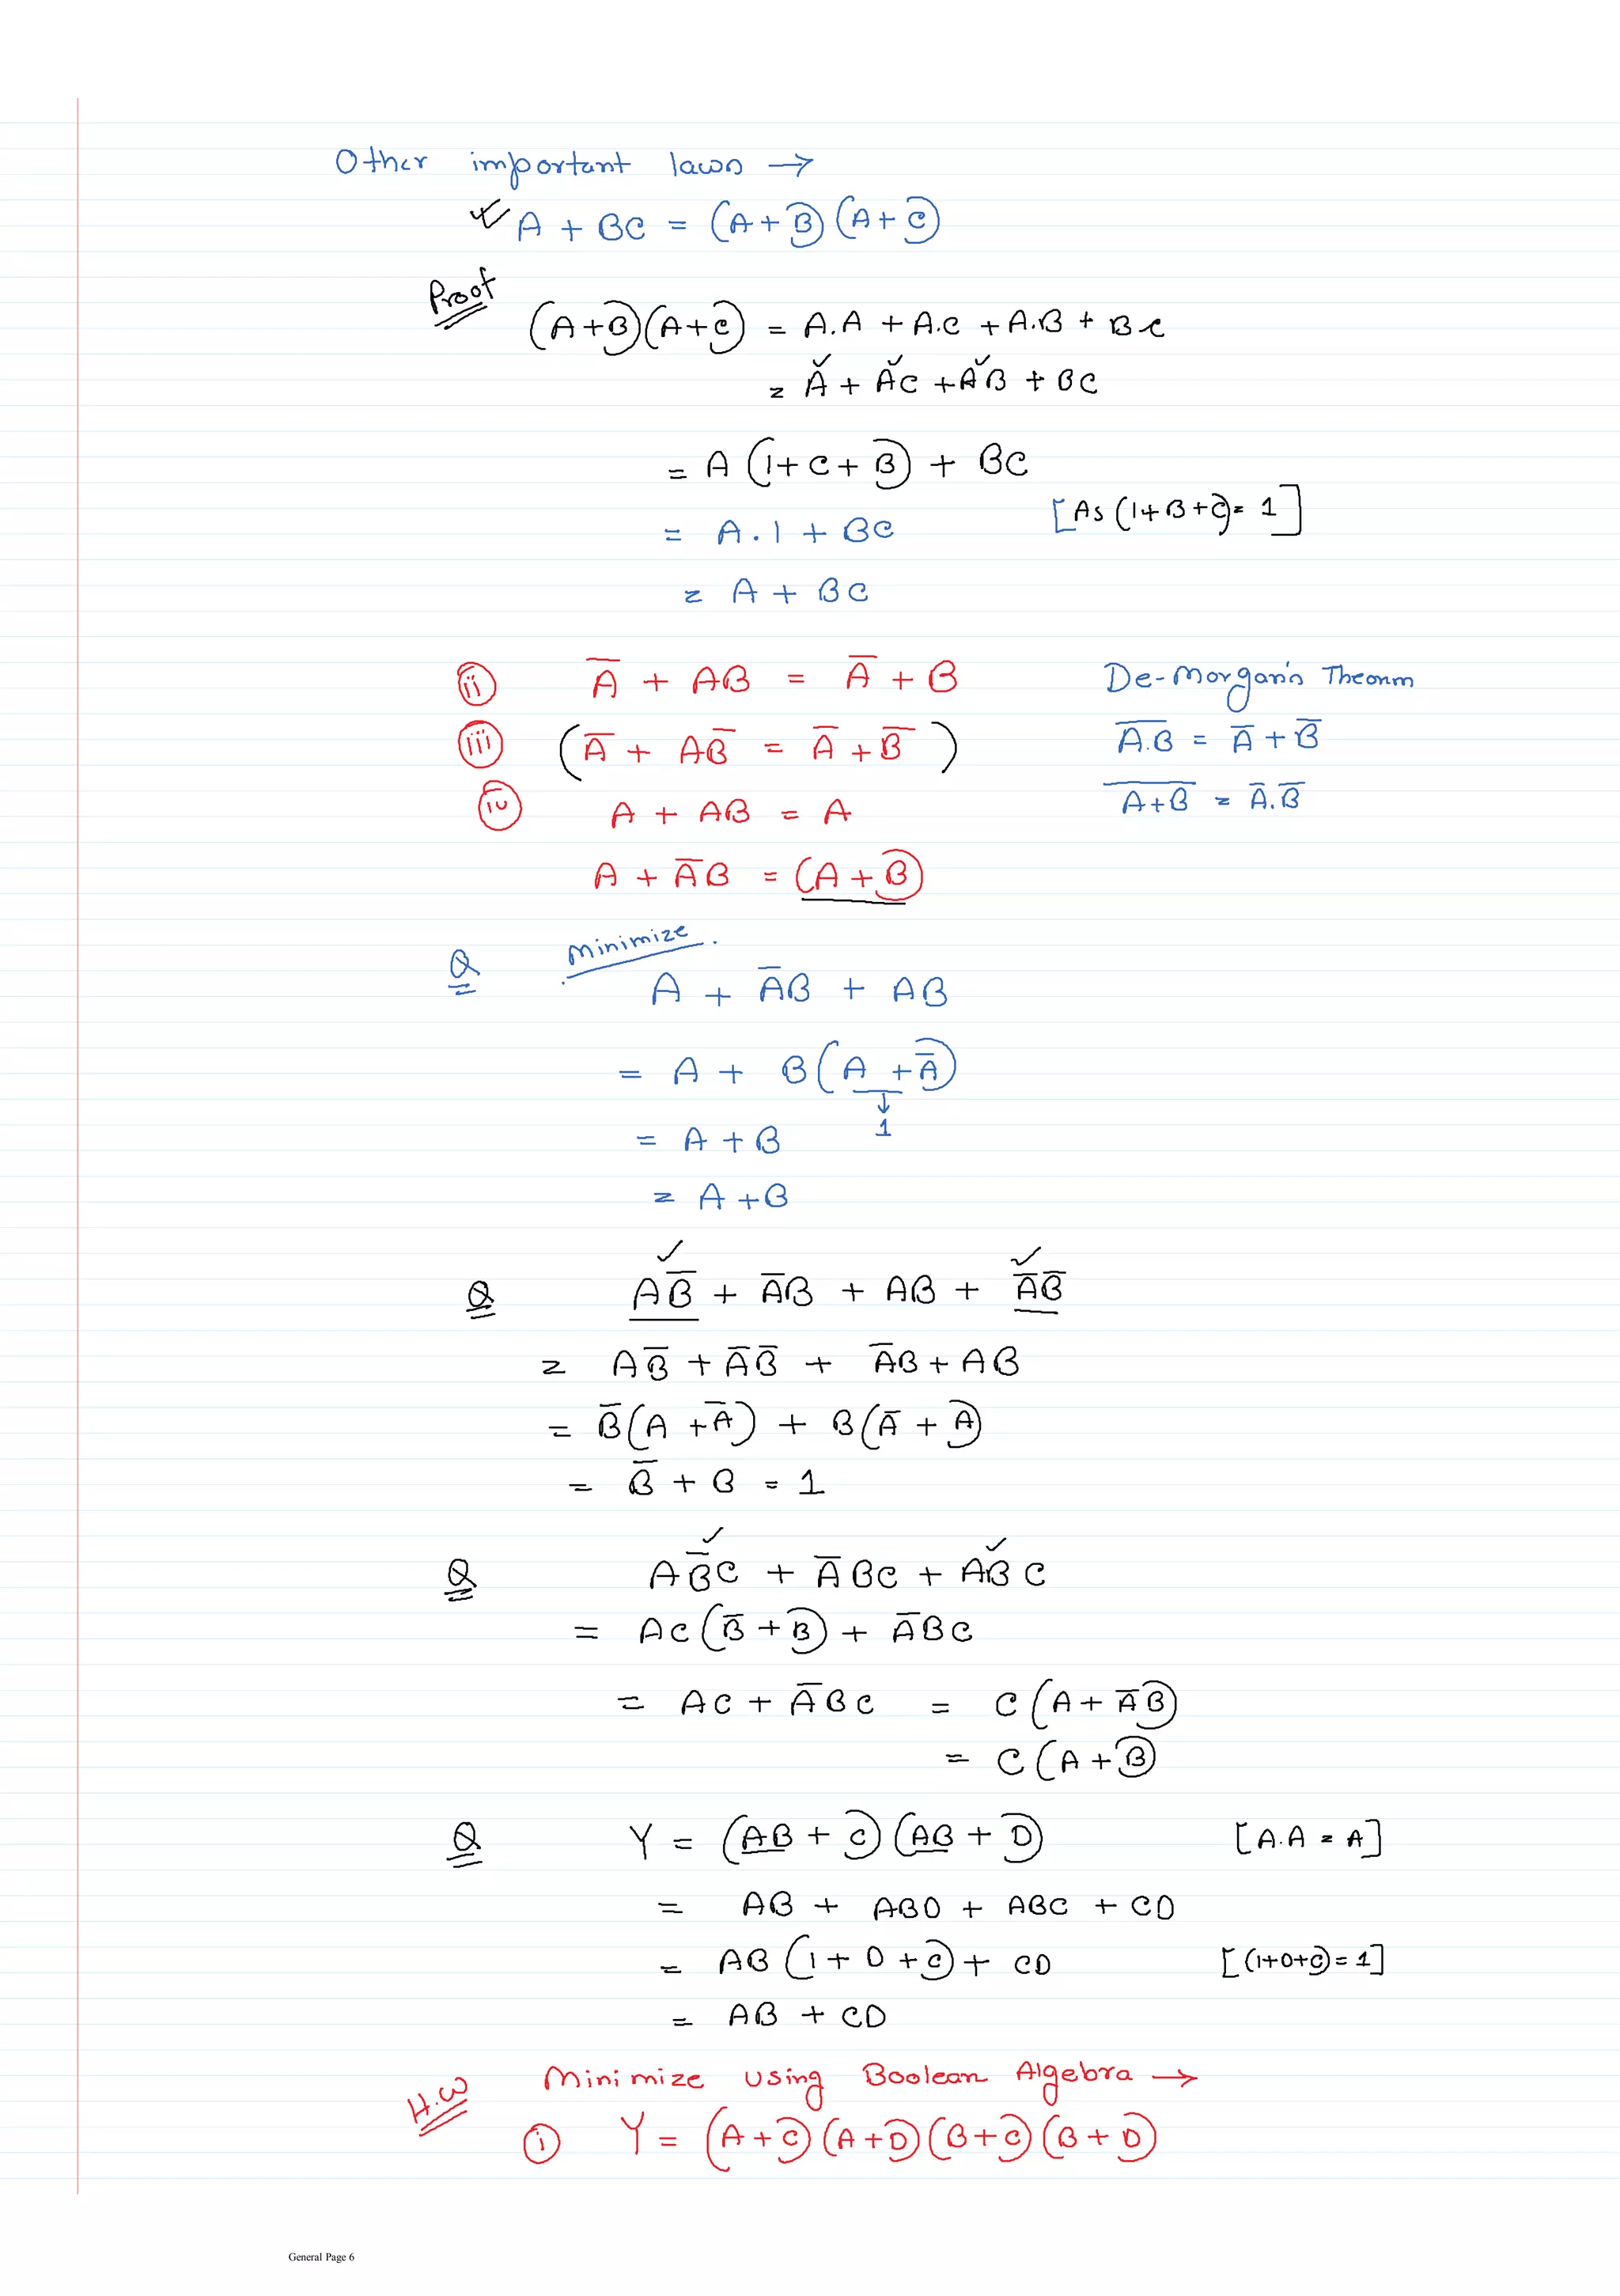 Other important laws →
A + BC = (A+B)(A+C)
Proof
(A+B)(A+C) = A.A + A.C + A.B + BC
= A + AC + AB + BC
= A (1+C+B) + BC
[As (1+B+C)= 1]
= A.1 + BC
= A + BC
(ii) A̅ + AB = A̅ + B
De-Morgan's Theorm
(iii) (A̅ + AB̅ = A̅ + B̅)
A̅.̅B̅ = A̅ + B̅
(iv) A + AB = A
A̅+̅B̅ = A̅.B̅
A + A̅B = (A+B)
Q Minimize.
A + A̅B + AB
= A + B(A + A̅)
↓
= A + B 1
= A + B
Q AB̅ + A̅B + AB + A̅B̅
= AB̅ + A̅B̅ + A̅B + AB
= B̅(A + A̅) + B(A̅ + A)
= B̅ + B = 1
Q AB̅C + A̅BC + ABC
= AC(B̅ + B) + A̅BC
= AC + A̅BC = C(A + A̅B)
= C(A+B)
Q Y = (AB + C)(AB + D) [A.A = A]
= AB + ABD + ABC + CD
= AB (1 + D + C) + CD [(1+D+C)= 1]
= AB + CD
H.W Minimize using Boolean Algebra →
(i) Y = (A+C)(A+D)(B+C)(B+D)
General Page 6